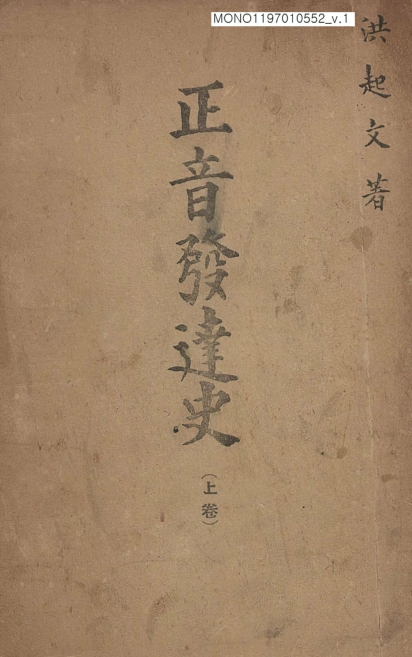 MONO1197010552_v.1
洪起文著
正音發達史
(上卷)